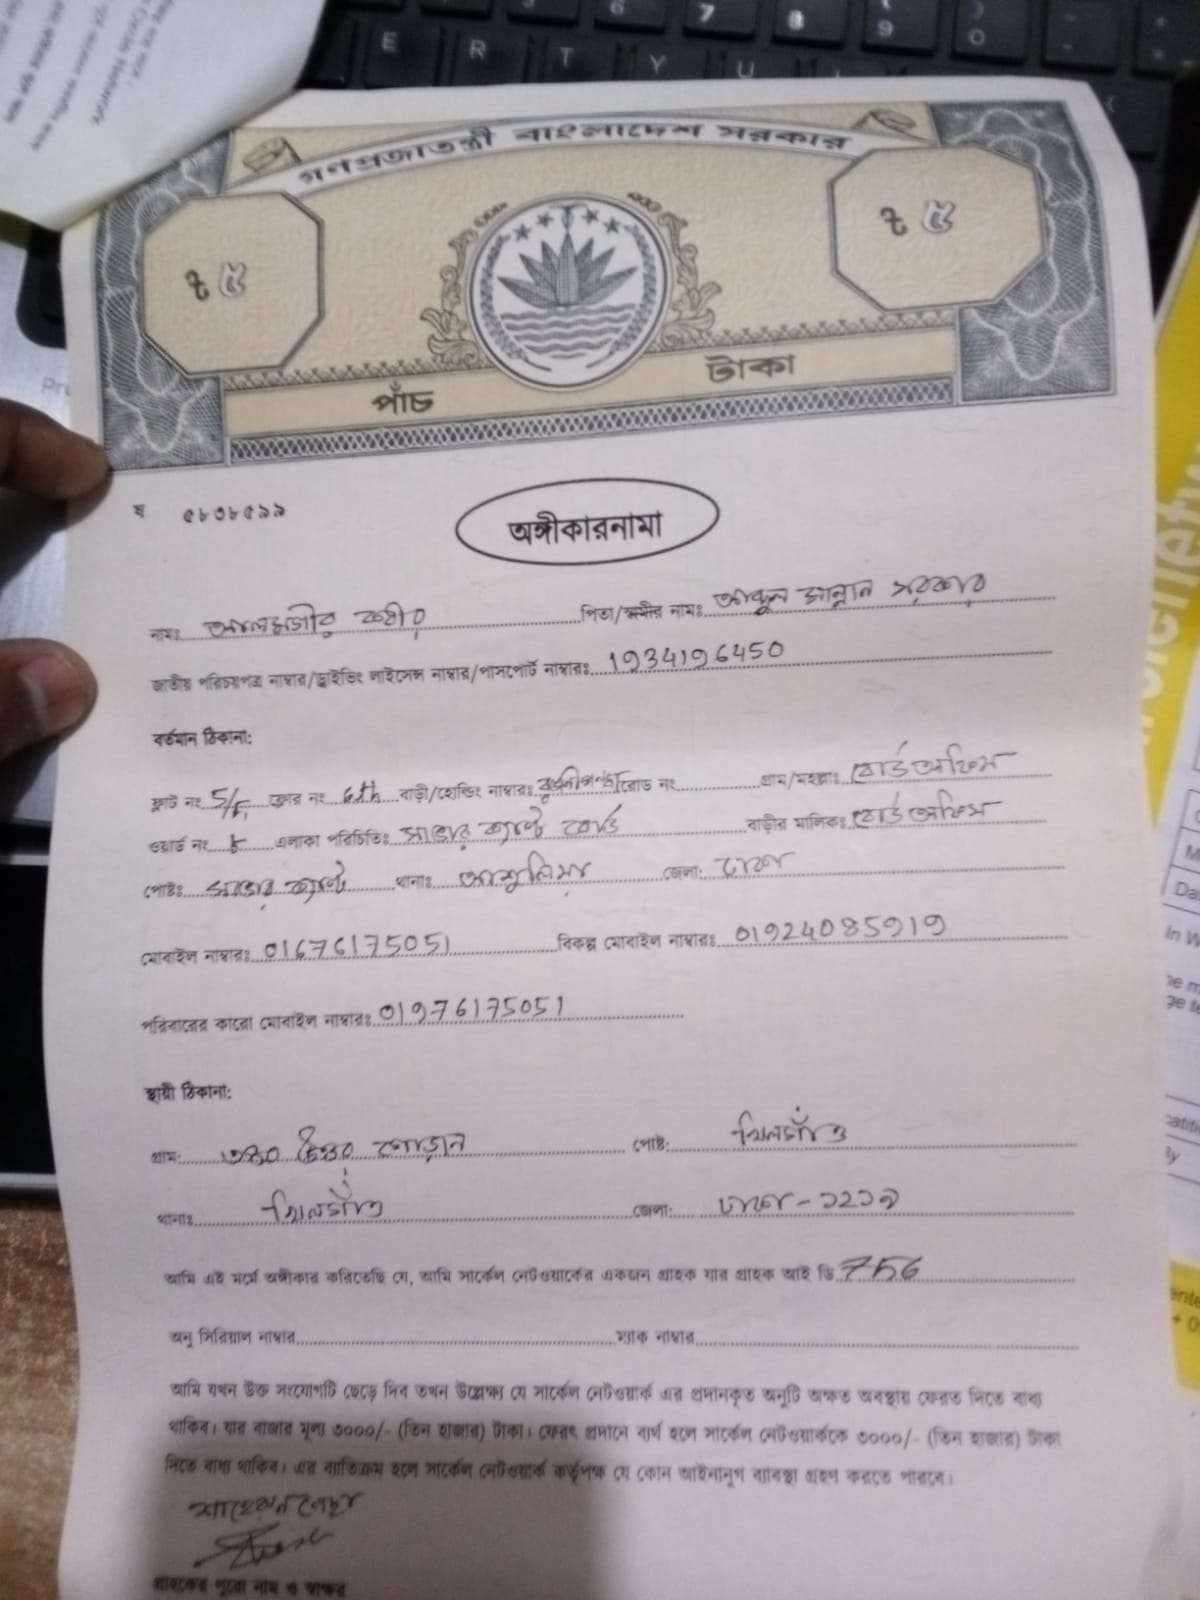 গণপ্রজাতন্ত্রী বাংলাদেশ সরকার
৳ ৫
৳ ৫
পাঁচ টাকা
ষ ৫৮৩৮৫৯৯
অঙ্গীকারনামা
নামঃ আলমগীর কবীর পিতা/স্বামীর নামঃ আব্দুল মান্নান সরকার
জাতীয় পরিচয়পত্র নাম্বার/ড্রাইভিং লাইসেন্স নাম্বার/পাসপোর্ট নাম্বারঃ 1934196450
বর্তমান ঠিকানা:
ফ্লাট নং 5/ ফ্লোর নং 6th বাড়ী/হোল্ডিং নাম্বারঃ রোড নং গ্রাম/মহল্লাঃ বোর্ড অফিস
ওয়ার্ড নং ৮ এলাকা পরিচিতিঃ সাভার ক্যান্ট বোর্ড বাড়ীর মালিকঃ বোর্ড অফিস
পোষ্টঃ সাভার ক্যান্ট থানাঃ আশুলিয়া জেলা: ঢাকা
মোবাইল নাম্বারঃ 01676175051 বিকল্প মোবাইল নাম্বারঃ 01924085919
পরিবারের কারো মোবাইল নাম্বারঃ 01976175051
স্থায়ী ঠিকানা:
গ্রাম: উত্তর গোড়ান পোষ্ট: খিলগাঁও
থানাঃ খিলগাঁও জেলা: ঢাকা - ১২১৯
আমি এই মর্মে অঙ্গীকার করিতেছি যে, আমি সার্কেল নেটওয়ার্কের একজন গ্রাহক যার গ্রাহক আই ডি 756
অনু সিরিয়াল নাম্বার ম্যাক নাম্বার
আমি যখন উক্ত সংযোগটি ছেড়ে দিব তখন উল্লেখ্য যে সার্কেল নেটওয়ার্ক এর প্রদানকৃত অনুটি অক্ষত অবস্থায় ফেরত দিতে বাধ্য
থাকিব। যার বাজার মূল্য ৩০০০/- (তিন হাজার) টাকা। ফেরৎ প্রদানে ব্যর্থ হলে সার্কেল নেটওয়ার্ককে ৩০০০/- (তিন হাজার) টাকা
দিতে বাধ্য থাকিব। এর ব্যতিক্রম হলে সার্কেল নেটওয়ার্ক কর্তৃপক্ষ যে কোন আইনানুগ ব্যবস্থা গ্রহণ করতে পারবে।
গ্রাহকের পুরো নাম ও স্বাক্ষর